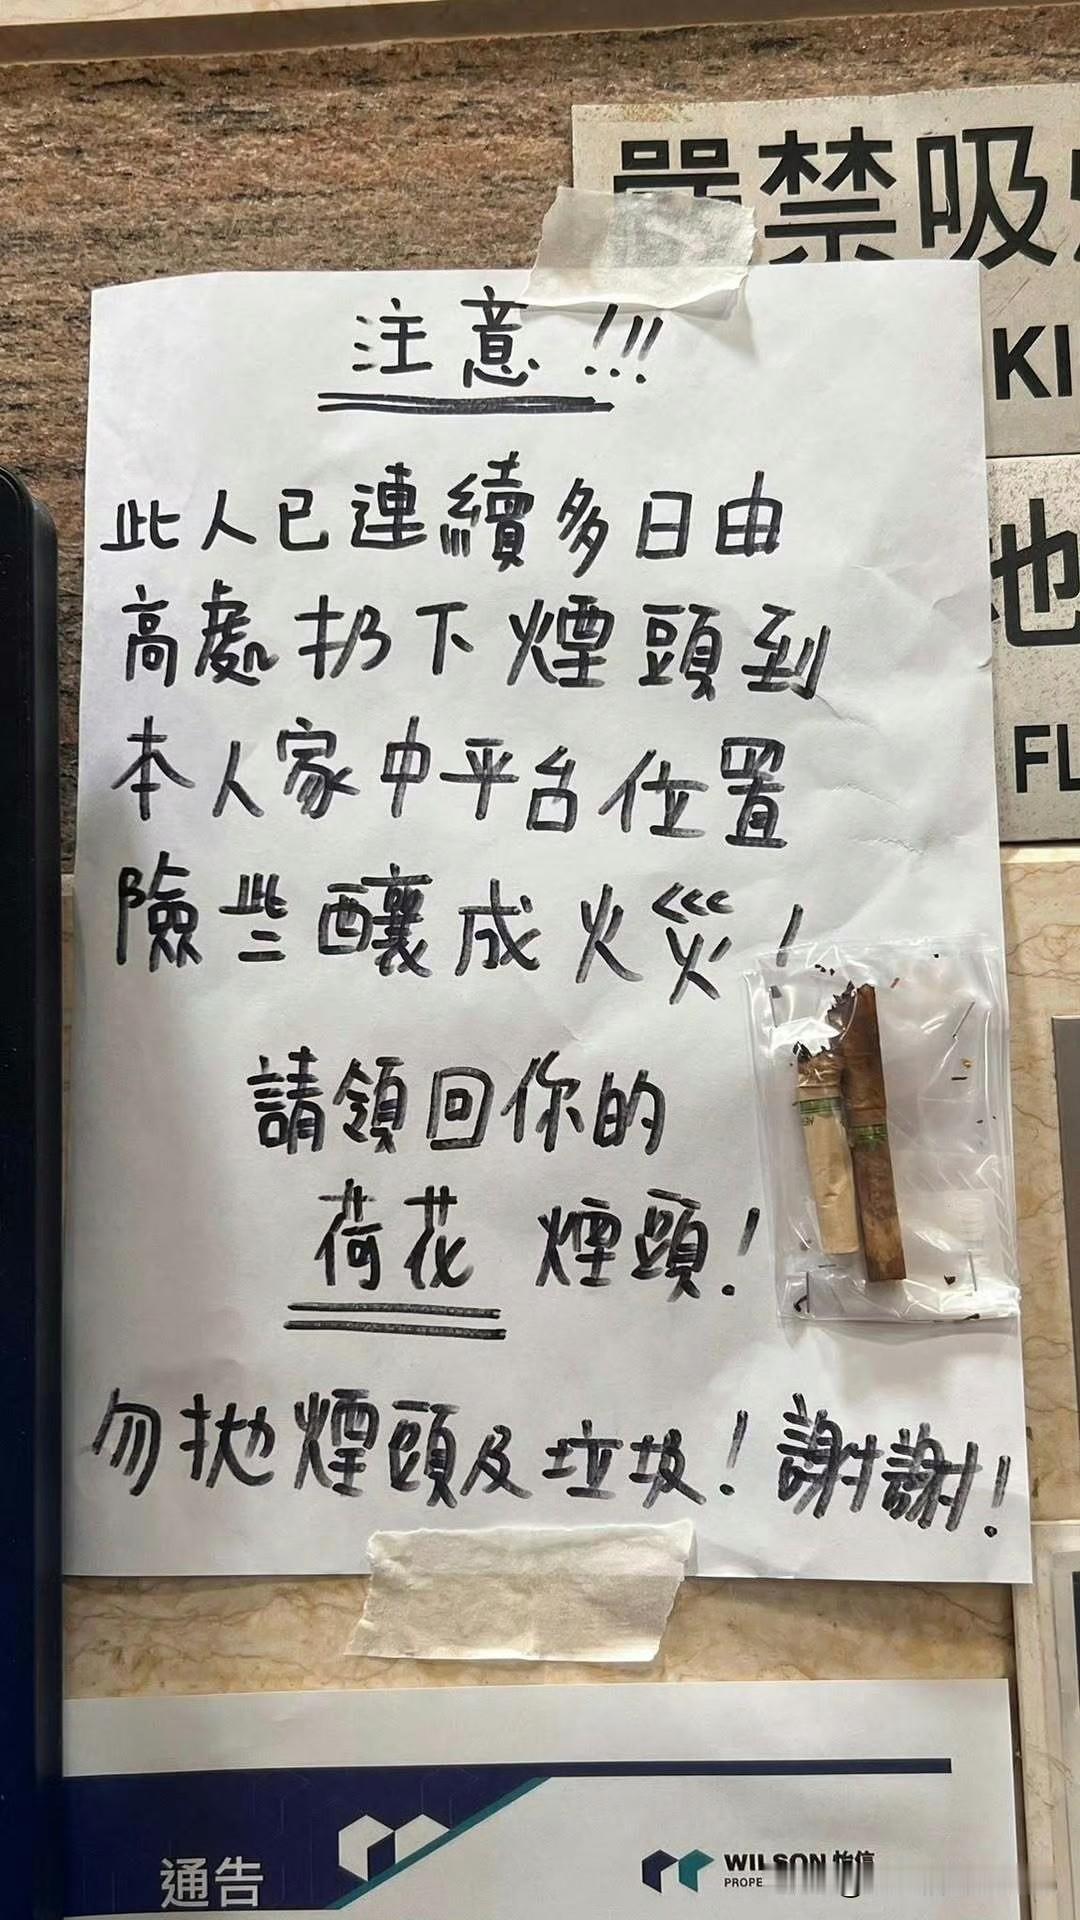 嚴禁吸
KI
注意!!!
此人已連續多日由
高處扔下煙頭到
本人家中平台位置
險些釀成火災!
請領回你的
荷花 煙頭!
勿拋煙頭及垃圾!謝謝!
地
FL
通告
WILSON 怡信
PROPE